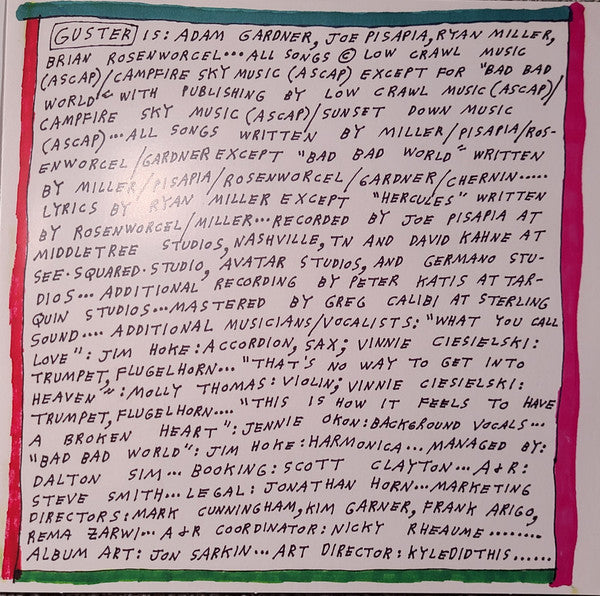 GUSTER IS: ADAM GARDNER, JOE PISAPIA, RYAN MILLER,
BRIAN ROSENWORCEL... ALL SONGS © LOW CRAWL MUSIC
(ASCAP)/CAMPFIRE SKY MUSIC (ASCAP) EXCEPT FOR "BAD BAD
WORLD" WITH PUBLISHING BY LOW CRAWL MUSIC (ASCAP)/
CAMPFIRE SKY MUSIC (ASCAP)/SUNSET DOWN MUSIC
(ASCAP)... ALL SONGS WRITTEN BY MILLER/PISAPIA/ROS-
ENWORCEL/GARDNER EXCEPT "BAD BAD WORLD" WRITTEN
BY MILLER/PISAPIA/ROSENWORCEL/GARDNER/CHERNIN.....
LYRICS BY RYAN MILLER EXCEPT "HERCULES" WRITTEN
BY ROSENWORCEL/MILLER... RECORDED BY JOE PISAPIA AT
MIDDLETREE STUDIOS, NASHVILLE, TN AND DAVID KAHNE AT
SEE·SQUARED·STUDIO, AVATAR STUDIOS, AND GERMANO STU-
DIOS... ADDITIONAL RECORDING BY PETER KATIS AT TAR-
QUIN STUDIOS... MASTERED BY GREG CALIBI AT STERLING
SOUND.... ADDITIONAL MUSICIANS/VOCALISTS: "WHAT YOU CALL
LOVE": JIM HOKE: ACCORDION, SAX; VINNIE CIESIELSKI:
TRUMPET, FLUGELHORN... "THAT'S NO WAY TO GET INTO
HEAVEN": MOLLY THOMAS: VIOLIN; VINNIE CIESIELSKI:
TRUMPET, FLUGELHORN.... "THIS IS HOW IT FEELS TO HAVE
A BROKEN HEART": JENNIE OKON: BACKGROUND VOCALS...
"BAD BAD WORLD": JIM HOKE: HARMONICA... MANAGED BY:
DALTON SIM... BOOKING: SCOTT CLAYTON... A&R:
STEVE SMITH... LEGAL: JONATHAN HORN... MARKETING
DIRECTORS: MARK CUNNINGHAM, KIM GARNER, FRANK ARIGO,
REMA ZARWI... A&R COORDINATOR: NICKY RHEAUME........
ALBUM ART: JON SARKIN... ART DIRECTOR: KYLEDIDTHIS......